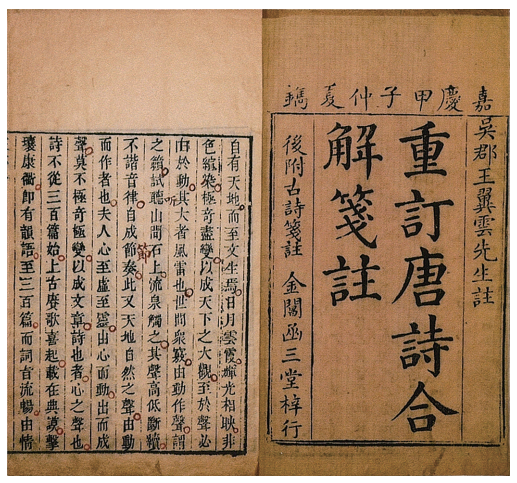 嘉慶甲子仲夏鐫
吳郡王翼雲先生註
重訂唐詩合
解箋註
後附古詩箋註 金閶函三堂梓行
自有天地而至文生焉日月雲霞輝光相映非
色繪染極奇盡變以成天下之大觀至於聲必
由於動其大者風雷也世間衆竅由動作聲謂
之籟試聽山間石上流泉觸之其聲高低斷續
不諧音律自成節奏此又天地自然之聲由動
而作者也夫人心至虛至靈出心而動出而成
聲莫不極奇極變以成文章詩也者心之聲也
詩不從三百篇始上古賡歌喜起載在典謨擊
壤康衢即有韻語至三百篇而詞旨流暢由情